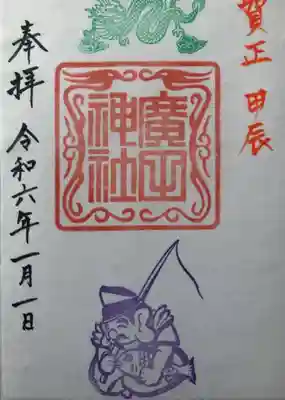 賀正 甲辰
廣田
神社
奉拝 令和六年一月一日